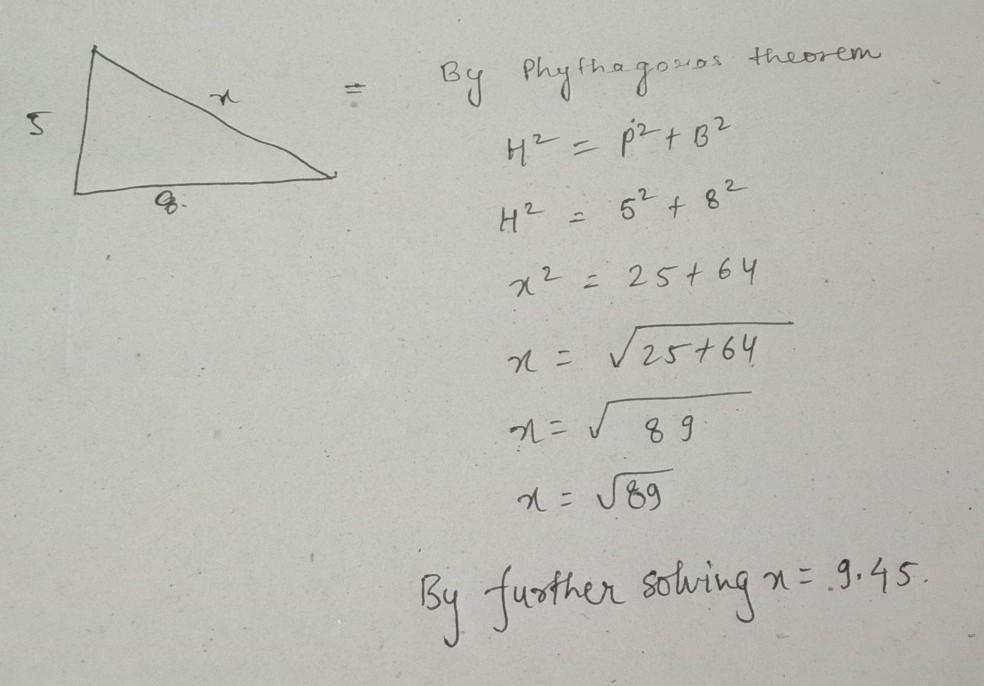 5
x
8.
= By Phythagoras theorem
H² = P² + B²
H² = 5² + 8²
x² = 25 + 64
x = √25+64
x = √89
x = √89
By further solving x = 9.45.